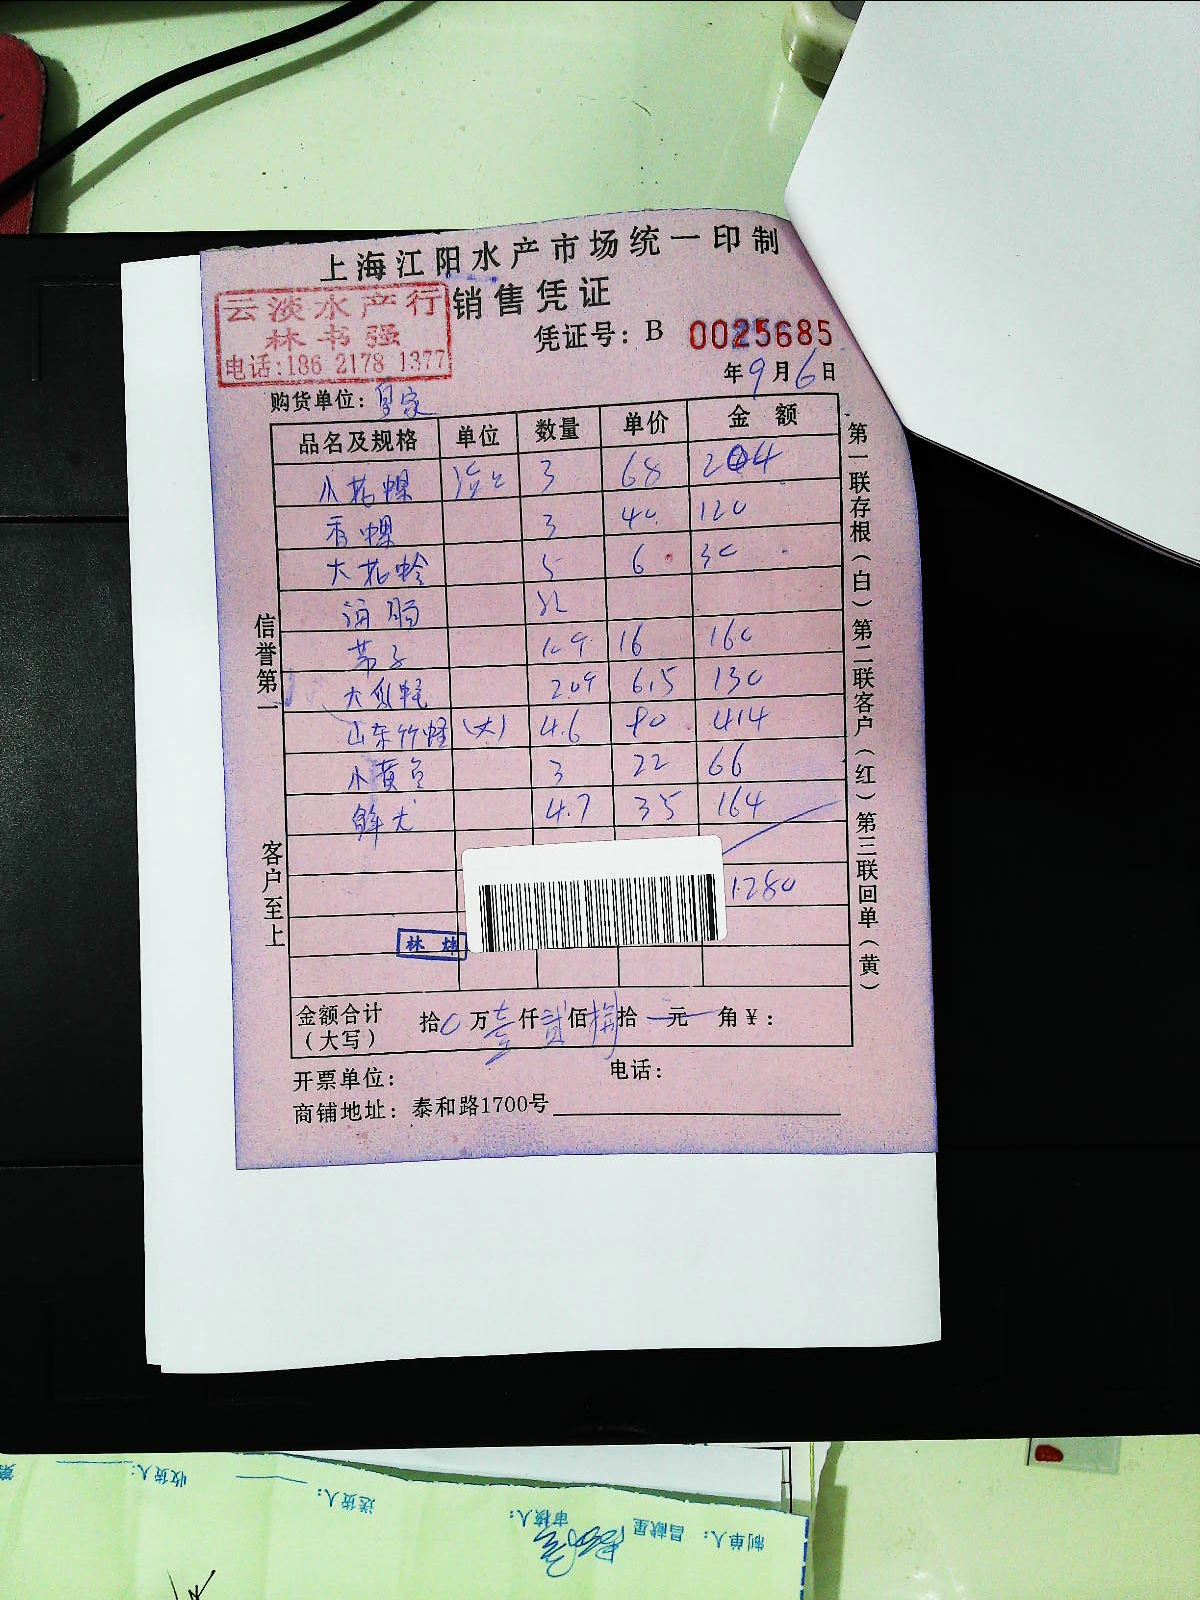 上海江阳水产市场统一印制
云淡水产行
销售凭证
林书强
凭证号：B 0025685
电话:186 2178 1377
年9月6日
购货单位：皇家
品名及规格 单位 数量 单价 金额
小花螺 3 68 204
香螺 3 40 120
大花蛤 5 6 30
海肠
16 160
6.5 130
山东竹蛏 (大) 4.6 90 414
小黄鱼 3 22 66
4.7 35 164
1280
林
金额合计（大写） 拾0万壹仟贰佰捌拾元角￥：
开票单位： 电话：
商铺地址：泰和路1700号
信誉第一 客户至上
第一联存根（白）第二联客户（红）第三联回单（黄）
制单人：吕献星 审核人： 送货人： 收货人：